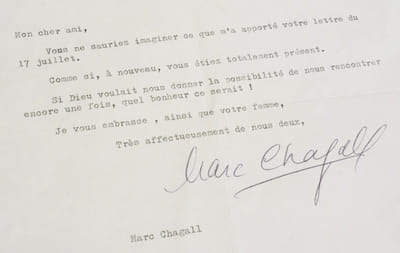 Mon cher ami,
Vous ne sauriez imaginer ce que m'a apporté votre lettre du
17 juillet.
Comme si, à nouveau, vous étiez totalement présent.
Si Dieu voulait nous donner la possibilité de nous rencontrer
encore une fois, quel bonheur ce serait !
Je vous embrasse , ainsi que votre femme,
Très affectueusement de nous deux,
Marc Chagall
Marc Chagall